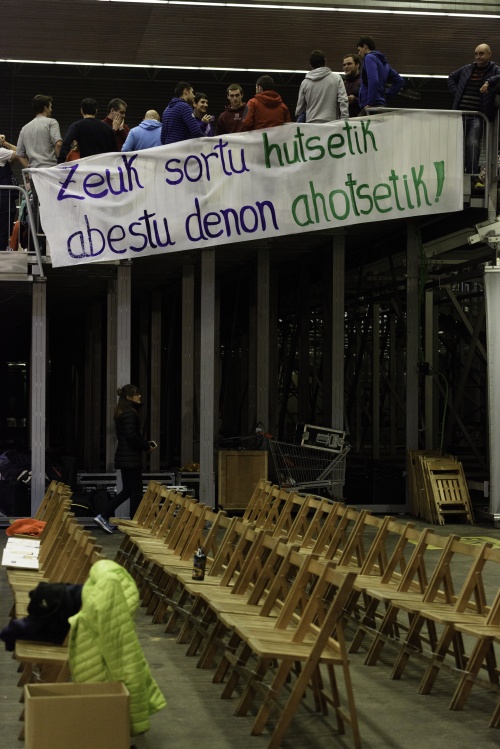 Zeuk sortu hutsetik
abestu denon ahotsetik!